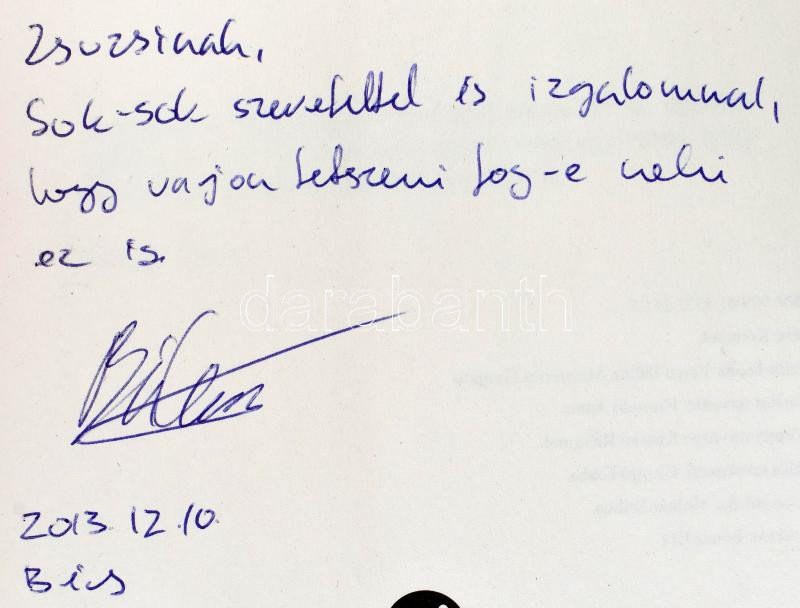 Zsuzsinak,
Sok-sok szeretettel és izgalommal,
hogy vajon tetszeni fog-e neki
ez is.
darabanth
2013. 12. 10.
Bécs